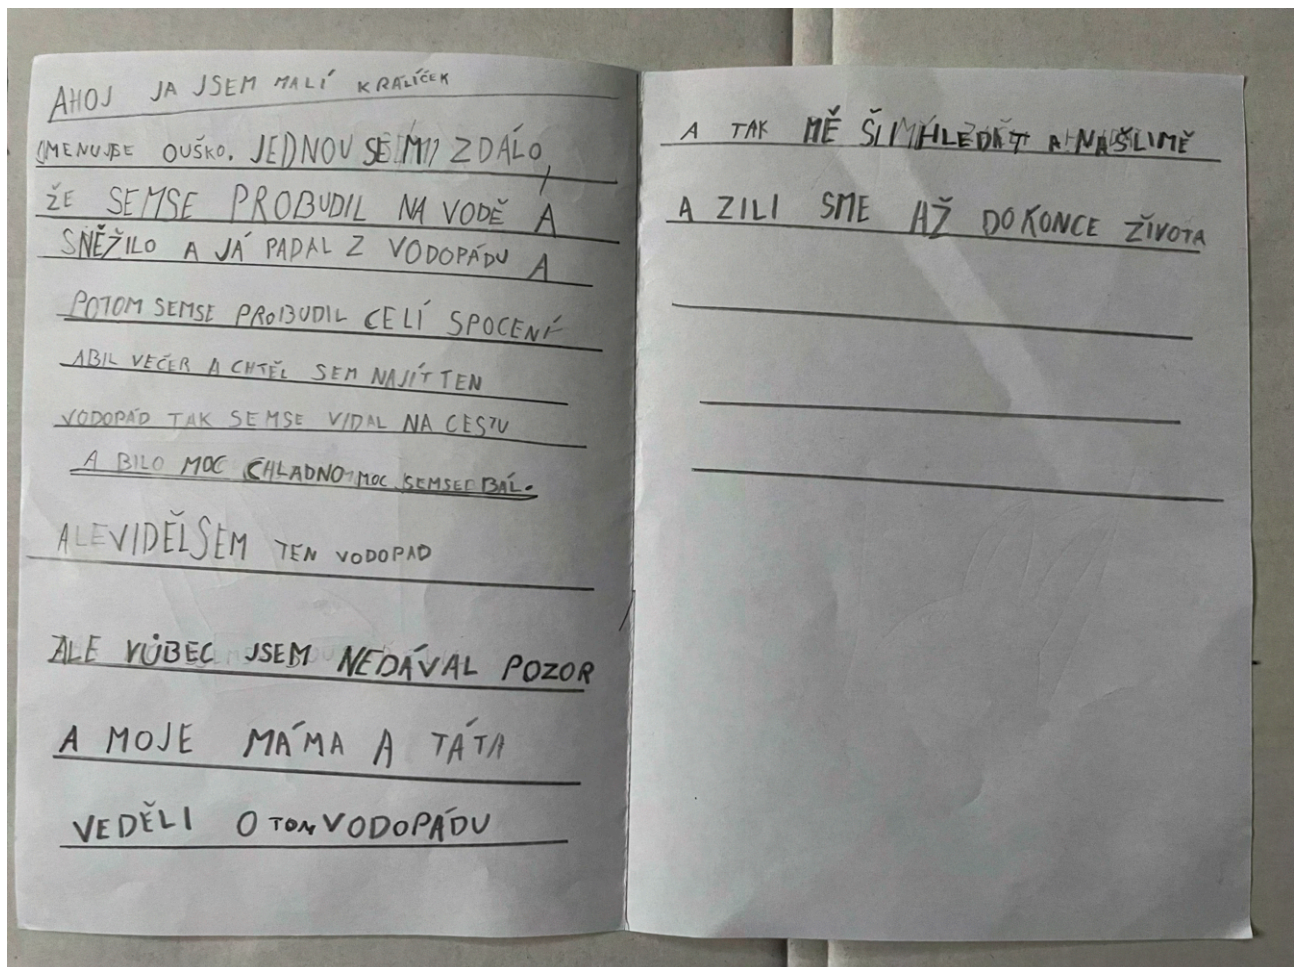 AHOJ JA JSEM MALÍ KRALÍČEK
JMENUJSE OUŠKO. JEDNOU SE MI ZDÁLO,
ŽE SEMSE PROBUDIL NA VODĚ A
SNĚŽILO A JÁ PADAL Z VODOPÁDU A
POTOM SEMSE PROBUDIL CELÍ SPOCENÍ
ABIL VEČER A CHTĚL SEM NAJÍT TEN
VODOPÁD TAK SEMSE VIDAL NA CESTU
A BILO MOC CHLADNO MOC SEMSE BÁL.
ALE VIDĚL SEM TEN VODOPAD
ALE VŮBEC JSEM NEDÁVAL POZOR
A MOJE MÁMA A TÁTA
VEDĚLI O TOM VODOPÁDU
A TAK MĚ ŠLI HLEDAT A NAŠLI MĚ
A ZILI SME AŽ DO KONCE ŽIVOTA